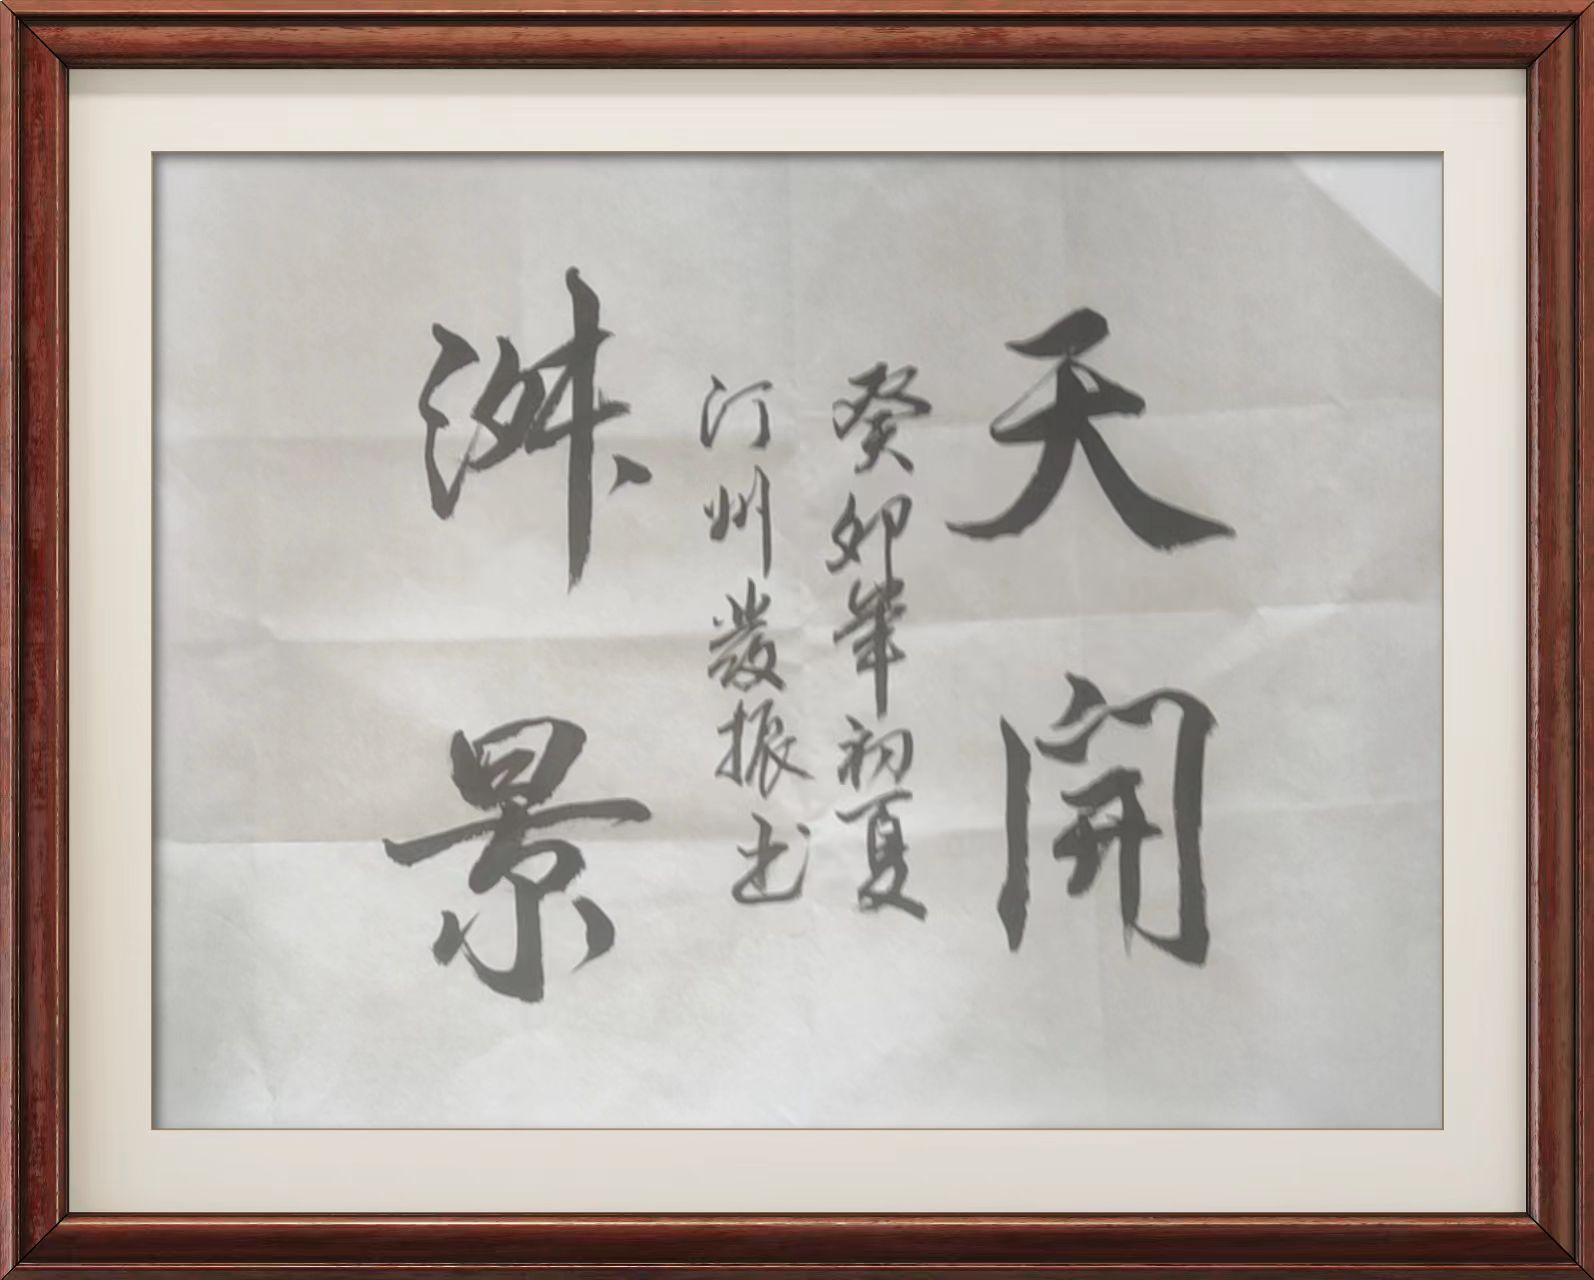 天開
癸卯年初夏
汀州發振书
淑景